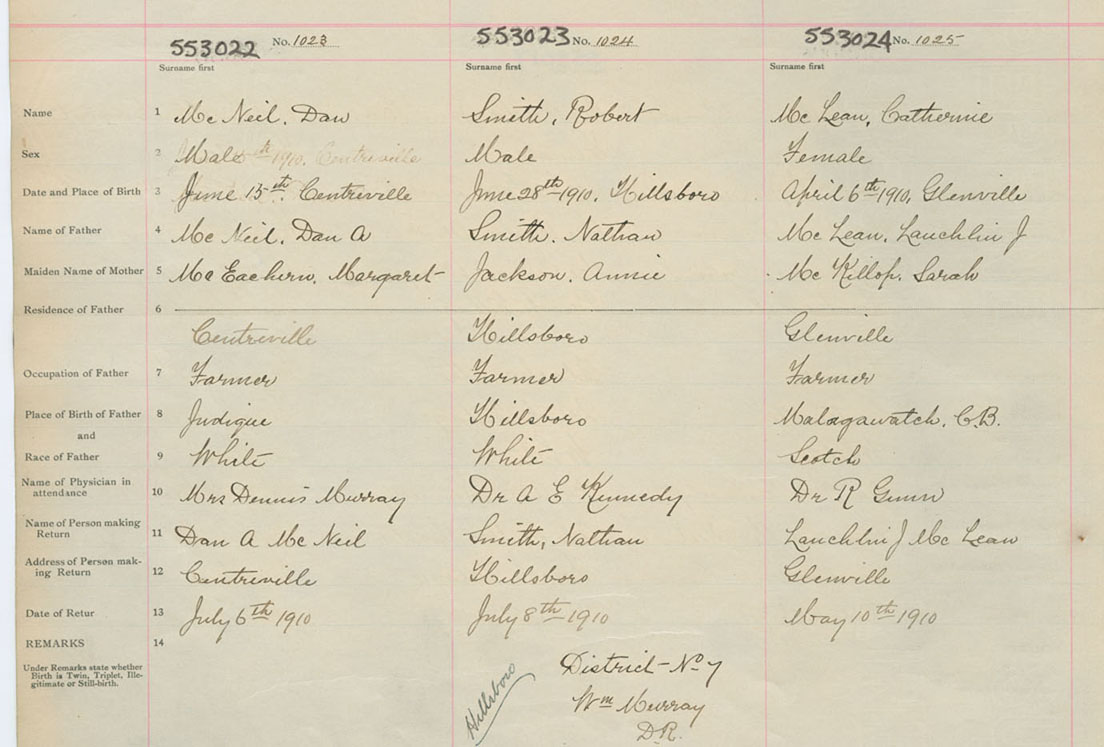 553022 No. 1023 553023 No. 1024 553024 No. 1025
Surname first Surname first Surname first
Name 1 Mc Neil, Dan Smith, Robert Mc Lean, Catherine
Sex 2 Male th 1910, Centreville Male Female
Date and Place of Birth 3 June 15th Centreville June 28th 1910, Hillsboro April 6th 1910, Glenville
Name of Father 4 Mc Neil, Dan A Smith, Nathan Mc Lean, Lauchlin J
Maiden Name of Mother 5 Mc Eachern, Margaret Jackson, Annie Mc Killop, Sarah
Residence of Father 6
Centreville Hillsboro Glenville
Occupation of Father 7 Farmer Farmer Farmer
Place of Birth of Father 8 Judique Hillsboro Malagawatch, C.B.
and
Race of Father 9 White White Scotch
Name of Physician in
attendance 10 Mrs Dennis Murray Dr A E Kennedy Dr R Gunn
Name of Person making
Return 11 Dan A Mc Neil Smith, Nathan Lauchlin J Mc Lean
Address of Person mak-
ing Return 12 Centreville Hillsboro Glenville
Date of Retur 13 July 6th 1910 July 8th 1910 May 10th 1910
REMARKS 14
Under Remarks state whether
Birth is Twin, Triplet, Ille-
gitimate or Still-birth.
Hillsboro
District No 7
Wm Murray
D.R.